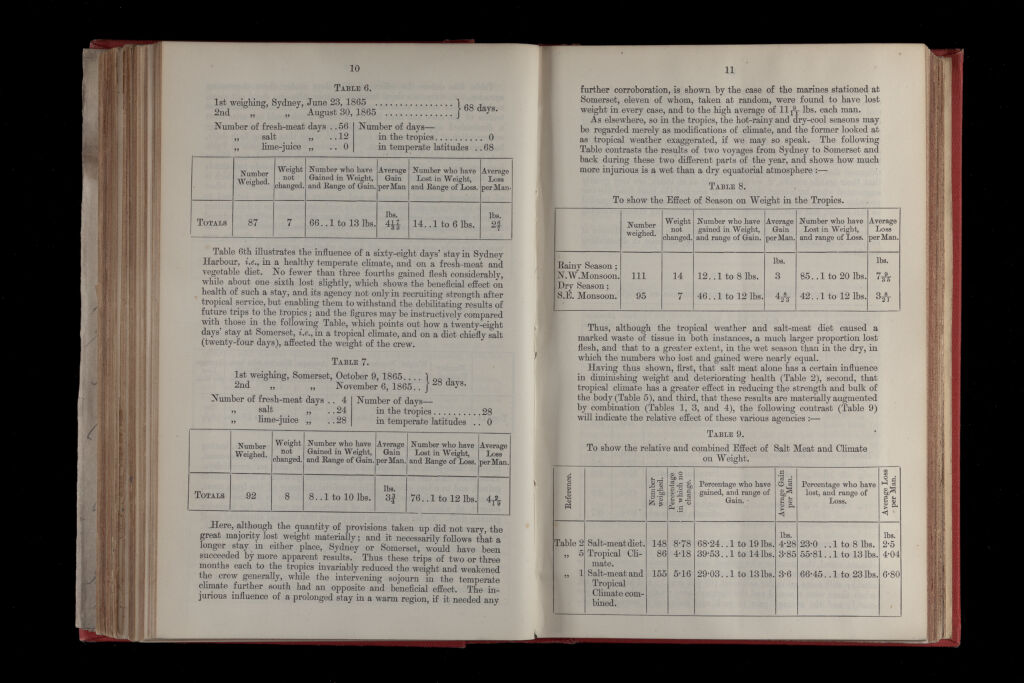 10
TABLE 6.
1st weighing, Sydney, June 23, 1865 ................ } 68 days.
2nd „ „ August 30, 1865 ..............
Number of fresh-meat days ..56 | Number of days—
„ salt „ ..12 | in the tropics........... 0
„ lime-juice „ .. 0 | in temperate latitudes ..68
Number Weighed. | Weight not changed. | Number who have Gained in Weight, and Range of Gain. | Average Gain per Man | Number who have Lost in Weight, and Range of Loss. | Average Loss per Man.
TOTALS | 87 | 7 | 66..1 to 13 lbs. | lbs. | 14..1 to 6 lbs. | lbs.
Table 6th illustrates the influence of a sixty-eight days' stay in Sydney
Harbour, i.e., in a healthy temperate climate, and on a fresh-meat and
vegetable diet. No fewer than three fourths gained flesh considerably,
while about one sixth lost slightly, which shows the beneficial effect on
health of such a stay, and its agency not only in recruiting strength after
tropical service, but enabling them to withstand the debilitating results of
future trips to the tropics; and the figures may be instructively compared
with those in the following Table, which points out how a twenty-eight
days' stay at Somerset, i.e., in a tropical climate, and on a diet chiefly salt
(twenty-four days), affected the weight of the crew.
TABLE 7.
1st weighing, Somerset, October 9, 1865.... } 28 days.
2nd „ „ November 6, 1865..
Number of fresh-meat days .. 4 | Number of days—
„ salt „ ..24 | in the tropics..........28
„ lime-juice „ ..28 | in temperate latitudes .. 0
Number Weighed. | Weight not changed. | Number who have Gained in Weight, and Range of Gain. | Average Gain per Man. | Number who have Lost in Weight, and Range of Loss. | Average Loss per Man.
TOTALS | 92 | 8 | 8..1 to 10 lbs. | lbs. 3¾ | 76..1 to 12 lbs. | 4 9/19
Here, although the quantity of provisions taken up did not vary, the
great majority lost weight materially; and it necessarily follows that a
longer stay in either place, Sydney or Somerset, would have been
succeeded by more apparent results. Thus these trips of two or three
months each to the tropics invariably reduced the weight and weakened
the crew generally, while the intervening sojourn in the temperate
climate further south had an opposite and beneficial effect. The in-
jurious influence of a prolonged stay in a warm region, if it needed any
11
further corroboration, is shown by the case of the marines stationed at
Somerset, eleven of whom, taken at random, were found to have lost
weight in every case, and to the high average of 11 9/11 lbs. each man.
As elsewhere, so in the tropics, the hot-rainy and dry-cool seasons may
be regarded merely as modifications of climate, and the former looked at
as tropical weather exaggerated, if we may so speak. The following
Table contrasts the results of two voyages from Sydney to Somerset and
back during these two different parts of the year, and shows how much
more injurious is a wet than a dry equatorial atmosphere :—
TABLE 8.
To show the Effect of Season on Weight in the Tropics.
Number weighed. | Weight not changed. | Number who have gained in Weight, and range of Gain. | Average Gain per Man. | Number who have Lost in Weight, and range of Loss. | Average Loss per Man.
lbs. | lbs.
Rainy Season;
N.W. Monsoon. | 111 | 14 | 12..1 to 8 lbs. | 3 | 85..1 to 20 lbs. | 7 9/35
Dry Season;
S.E. Monsoon. | 95 | 7 | 46..1 to 12 lbs. | 4 8/23 | 42..1 to 12 lbs. | 3 8/21
Thus, although the tropical weather and salt-meat diet caused a
marked waste of tissue in both instances, a much larger proportion lost
flesh, and that to a greater extent, in the wet season than in the dry, in
which the numbers who lost and gained were nearly equal.
Having thus shown, first, that salt meat alone has a certain influence
in diminishing weight and deteriorating health (Table 2), second, that
tropical climate has a greater effect in reducing the strength and bulk of
the body (Table 5), and third, that these results are materially augmented
by combination (Tables 1, 3, and 4), the following contrast (Table 9)
will indicate the relative effect of these various agencies :—
TABLE 9.
To show the relative and combined Effect of Salt Meat and Climate
on Weight.
Reference. | Number weighed. | Percentage in which no change. | Percentage who have gained, and range of Gain. | Average Gain per Man. | Percentage who have lost, and range of Loss. | Average Loss per Man.
lbs. | lbs.
Table 2 | Salt-meat diet. | 148 | 8·78 | 68·24..1 to 19 lbs. | 4·28 | 23·0 ..1 to 8 lbs. | 2·5
„ 5 | Tropical Cli- | 86 | 4·18 | 39·53..1 to 14 lbs. | 3·85 | 55·81..1 to 13 lbs. | 4·04
mate.
„ 1 | Salt-meat and | 155 | 5·16 | 29·03..1 to 13 lbs. | 3·6 | 66·45..1 to 23 lbs. | 6·80
Tropical
Climate com-
bined.